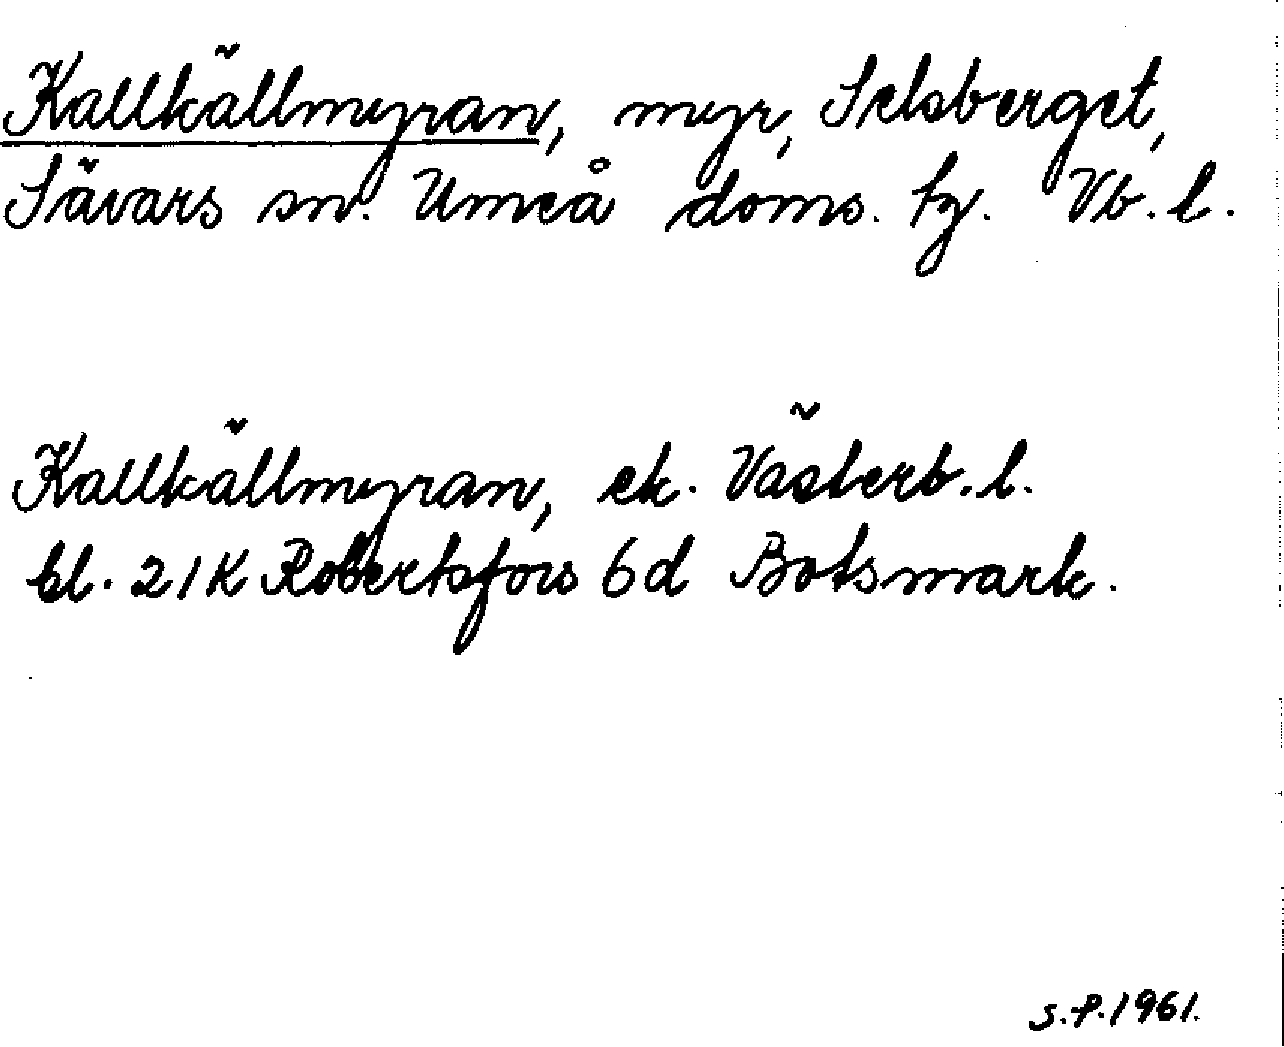 Kallkällmyran, myr, Selsberget,
Sävars sn. Umeå doms. tg. Vb. l.
Kallkällmyran, ek. Västerb. l.
bl. 21K Robertsfors 6d Botsmark.
S.P. 1961.